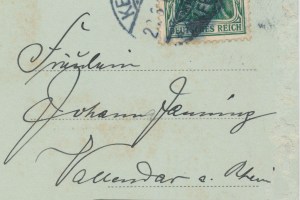 DEUTSCHES REICH
Fräulein
Johanna Janning
Vallendar a. Rhein